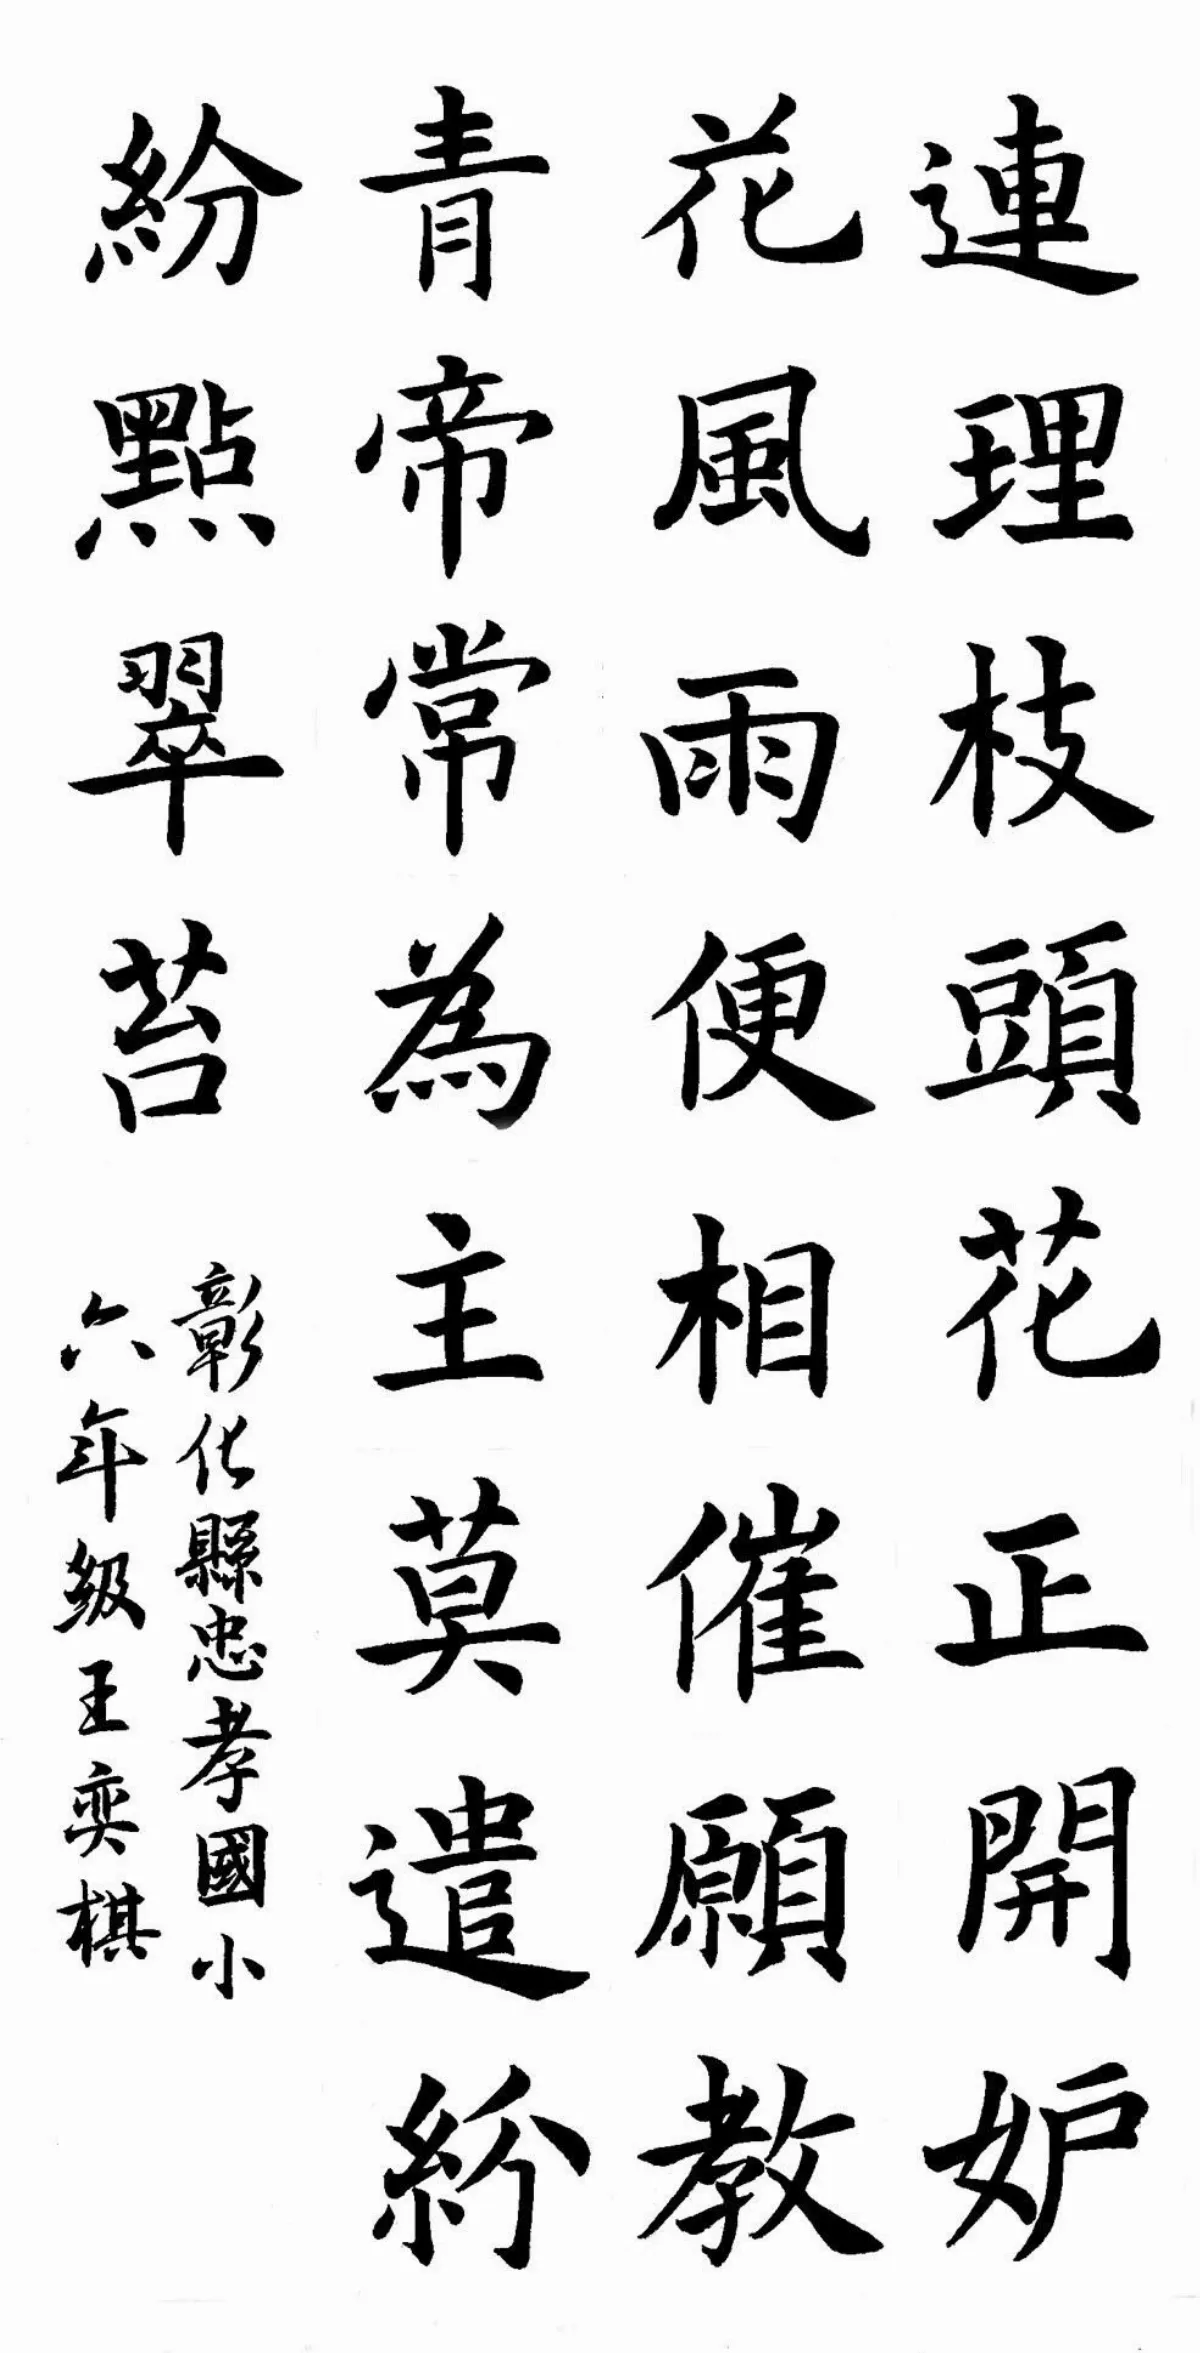 連理枝頭花正開妒
花風雨便相催願教
青帝常為主莫遣紛
紛點翠苔
彰化縣忠孝國小
六年級王奕棋